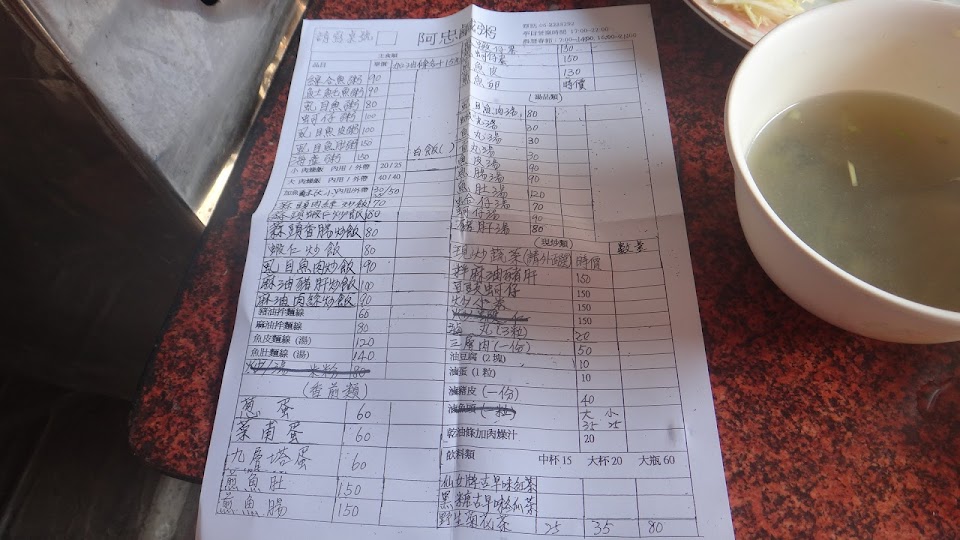 阿忠鹹粥
主食類
品名 單價 加油條 加汁15元
綜合魚粥 90
魠魠魚粥 90
虱目魚粥 80
蚵仔粥 100
虱目魚皮粥 100
虱目魚肚粥 150
海產粥 150
小 肉燥飯 內用/外帶 20/25
大 肉燥飯 內用/外帶 40/40
30/50
白飯( )
蒜頭肉絲炒飯 70
蒜頭蝦仁炒飯 80
蒜頭香腸炒飯 80
蝦仁炒飯 80
虱目魚肉炒飯 90
麻油豬肝炒飯 100
麻油肉絲炒飯 90
醬油拌麵線 60
麻油拌麵線 80
魚皮麵線 (湯) 120
魚肚麵線 (湯) 140
米粉 80
(香煎類)
蔥蛋 60
菜甫蛋 60
九層塔蛋 60
煎魚肚 150
煎魚腸 150
130
150
魚皮 130
時價
(湯品類)
虱目魚肉湯 80
丸湯 30
丸湯 30
魚皮湯 90
魚腸湯 90
魚肚湯 120
蛤仔湯 70
蚵仔湯 90
豬肝湯 80
(現炒類) 數量
現炒蔬菜(請外選) 時價
拌麻油豬肝 150
豆豉蚵仔 150
炒小菜 150
150
丸(3粒) 20
三層肉(一份) 50
油豆腐 (2塊) 10
滷蛋 (1粒) 10
滷豬皮 (一份) 40
滷魚頭 (一粒) 大 小
35 25
乾油條加肉燥汁 20
飲料類 中杯15 大杯20 大瓶60
仙女牌古早味紅茶
黑糖古早味冬瓜茶
野生菊花茶 25 35 80